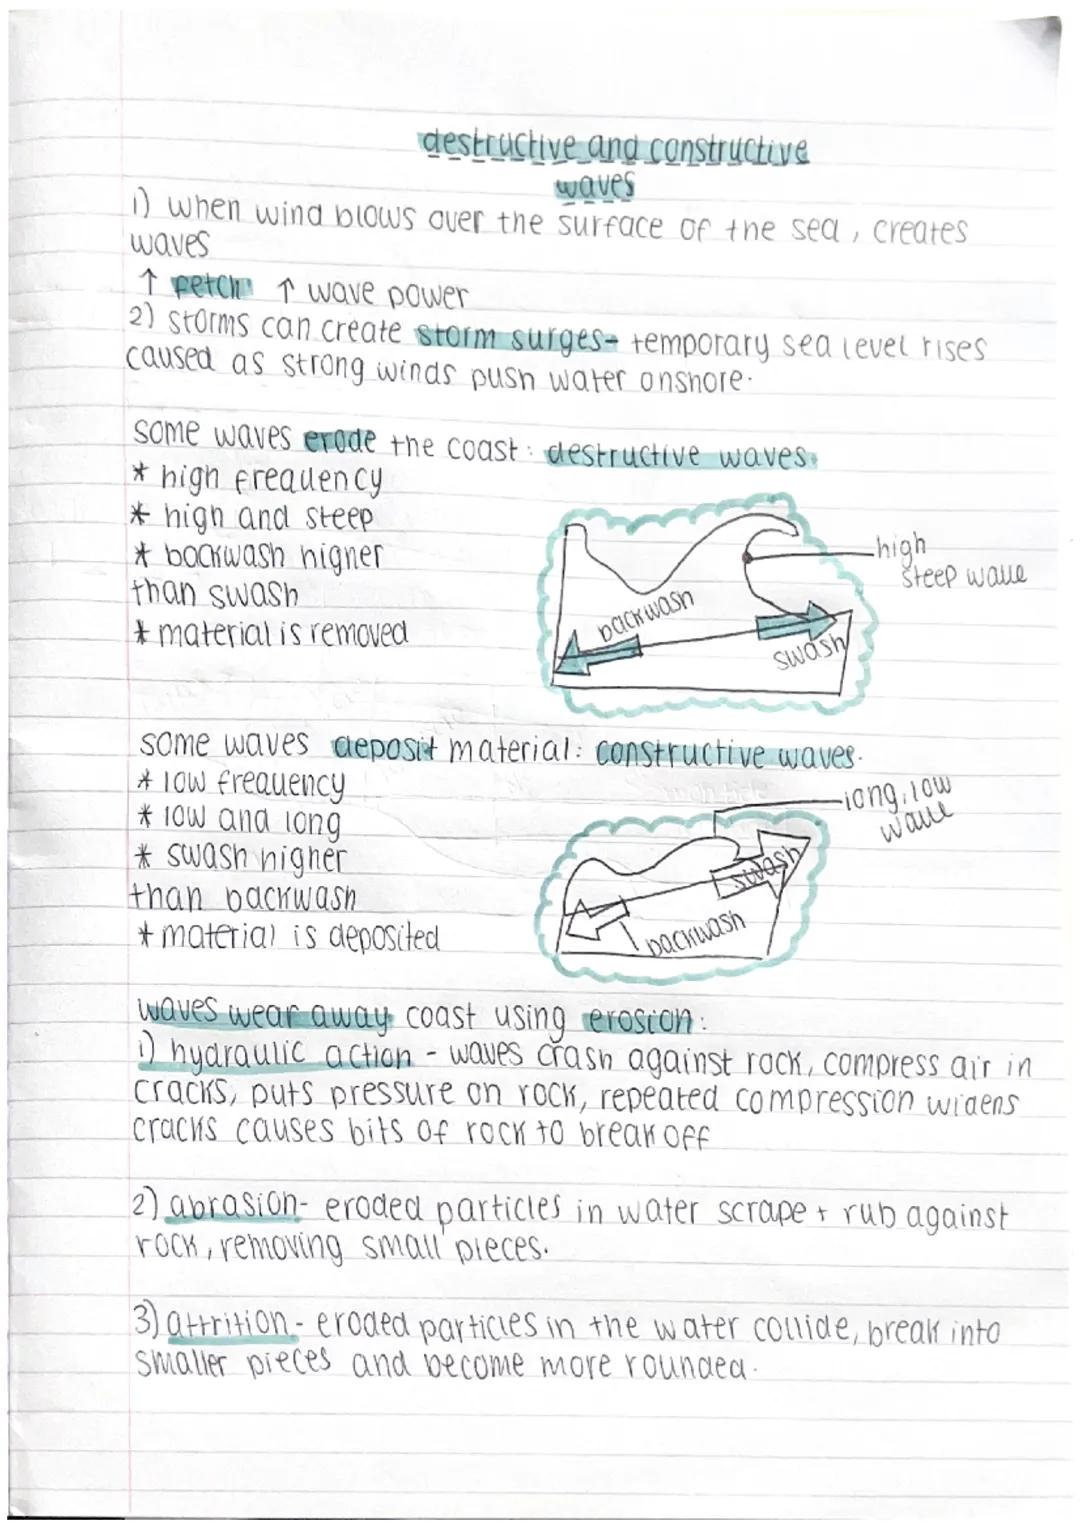 destructive and constructive
waves
1) when wind blows over the surface of the sea, creates
waves
↑ fetch ↑ wave power
2) storms can create storm surges- temporary sea level rises
caused as strong winds push water onshore.
some waves erode the coast: destructive waves.
* high frequency
* high and steep
* backwash higher
than swash
* material is removed
high
steep wave
backwash
swash
some waves deposit material: constructive waves.
* low frequency
* low and long
* swash higher
than backwash
* material is deposited
long, low
wave
swash
backwash
waves wear away coast using erosion:
1) hydraulic action - waves crash against rock, compress air in
cracks, puts pressure on rock, repeated compression widens
cracks causes bits of rock to break off
2) abrasion- eroded particles in water scrape + rub against
rock, removing small pieces.
3) attrition - eroded particles in the water collide, break into
smaller pieces and become more rounded.